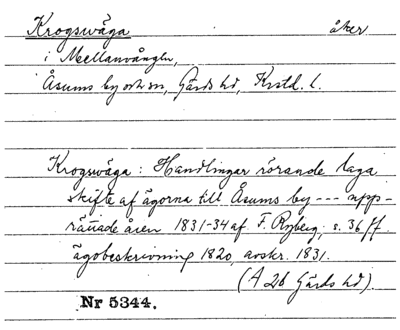 Krogswåga åker
i Mellanvången,
Åsums by och sn, Gärds hd, Krstd. l.
Krogswåga : Handlingar rörande laga
skifte af ägorna till Åsums by --- upp-
rättade åren 1831-34 af F. Ryberg, s. 36 ff.
ägobeskrivning 1820, avskr. 1831.
(A 26 Gärds hd)
Nr 5344.